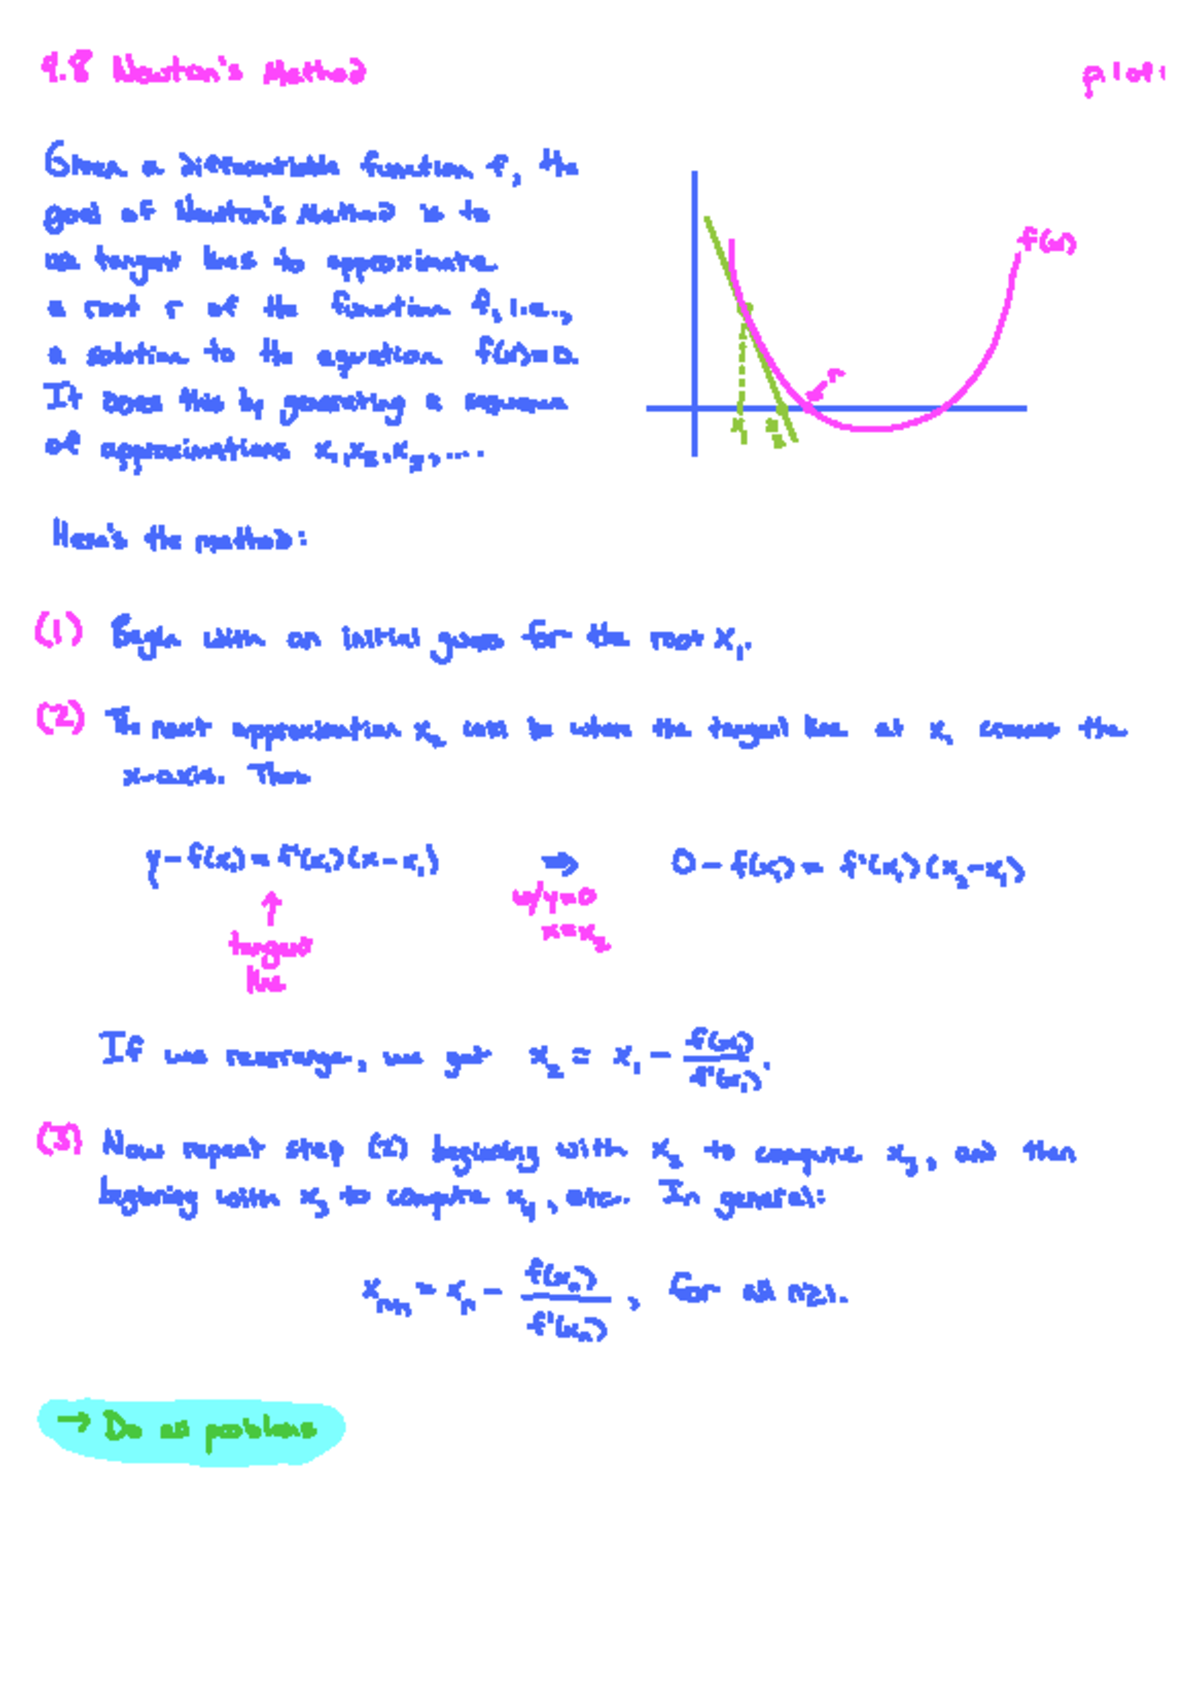 4.8 Newton's Method
p 1 of 1
Given a differentiable function f, the
goal of Newton's Method is to
use tangent lines to approximate
a root r of the function f, i.e.,
a solution to the equation f(x)=0.
It does this by generating a sequence
of approximations x₁,x₂,x₃,....
f(x)
r
x₁ x₂
Here's the method:
(1) Begin with an initial guess for the root x₁.
(2) The next approximation x₂ will be where the tangent line at x₁ crosses the
x-axis. Then
y-f(x₁)=f'(x₁)(x-x₁) ⇒ 0-f(x₁)=f'(x₁)(x₂-x₁)
↑ w/y=0
tangent x=x₂
line
If we rearrange, we get x₂ = x₁ - f(x₁)/f'(x₁).
(3) Now repeat step (2) beginning with x₂ to compute x₃, and then
beginning with x₃ to compute x₄, etc. In general:
xₙ₊₁ = xₙ - f(xₙ)/f'(xₙ), for all n≥1.
→ Do all problems